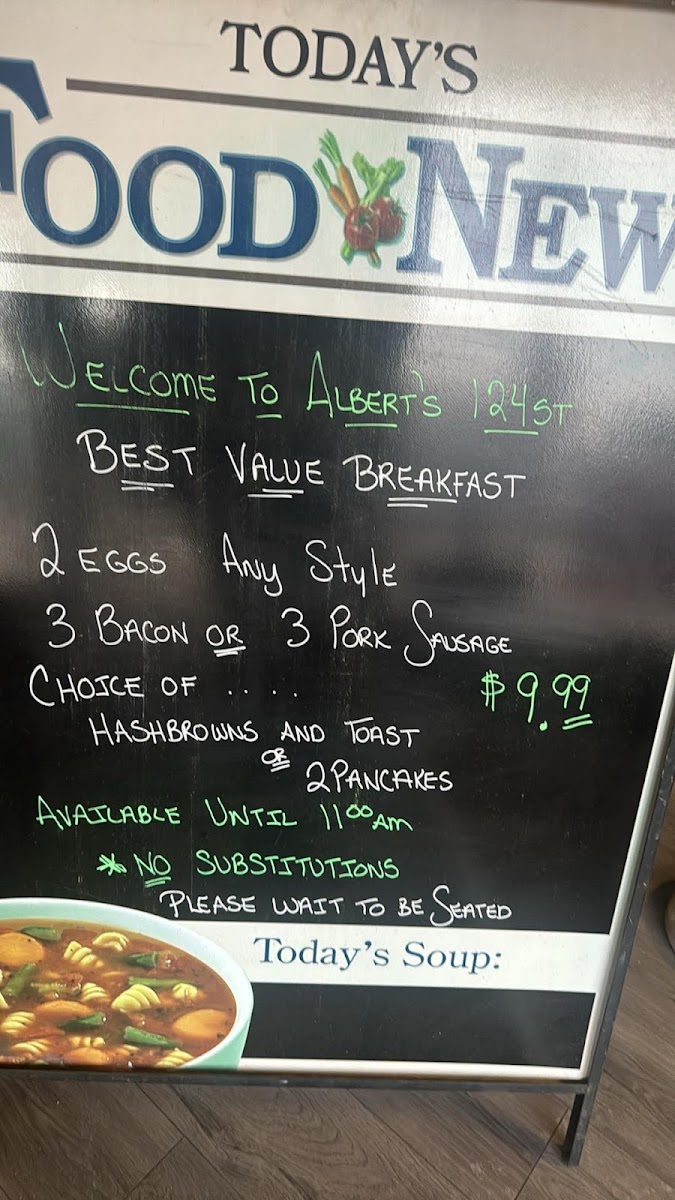 TODAY'S
FOOD NEW
WELCOME TO ALBERT'S 124ST
BEST VALUE BREAKFAST
2 EGGS ANY STYLE
3 BACON OR 3 PORK SAUSAGE
CHOICE OF ....
$9.99
HASHBROWNS AND TOAST
OR
2 PANCAKES
AVAILABLE UNTIL 11 00 AM
* NO SUBSTITUTIONS
PLEASE WAIT TO BE SEATED
Today's Soup: